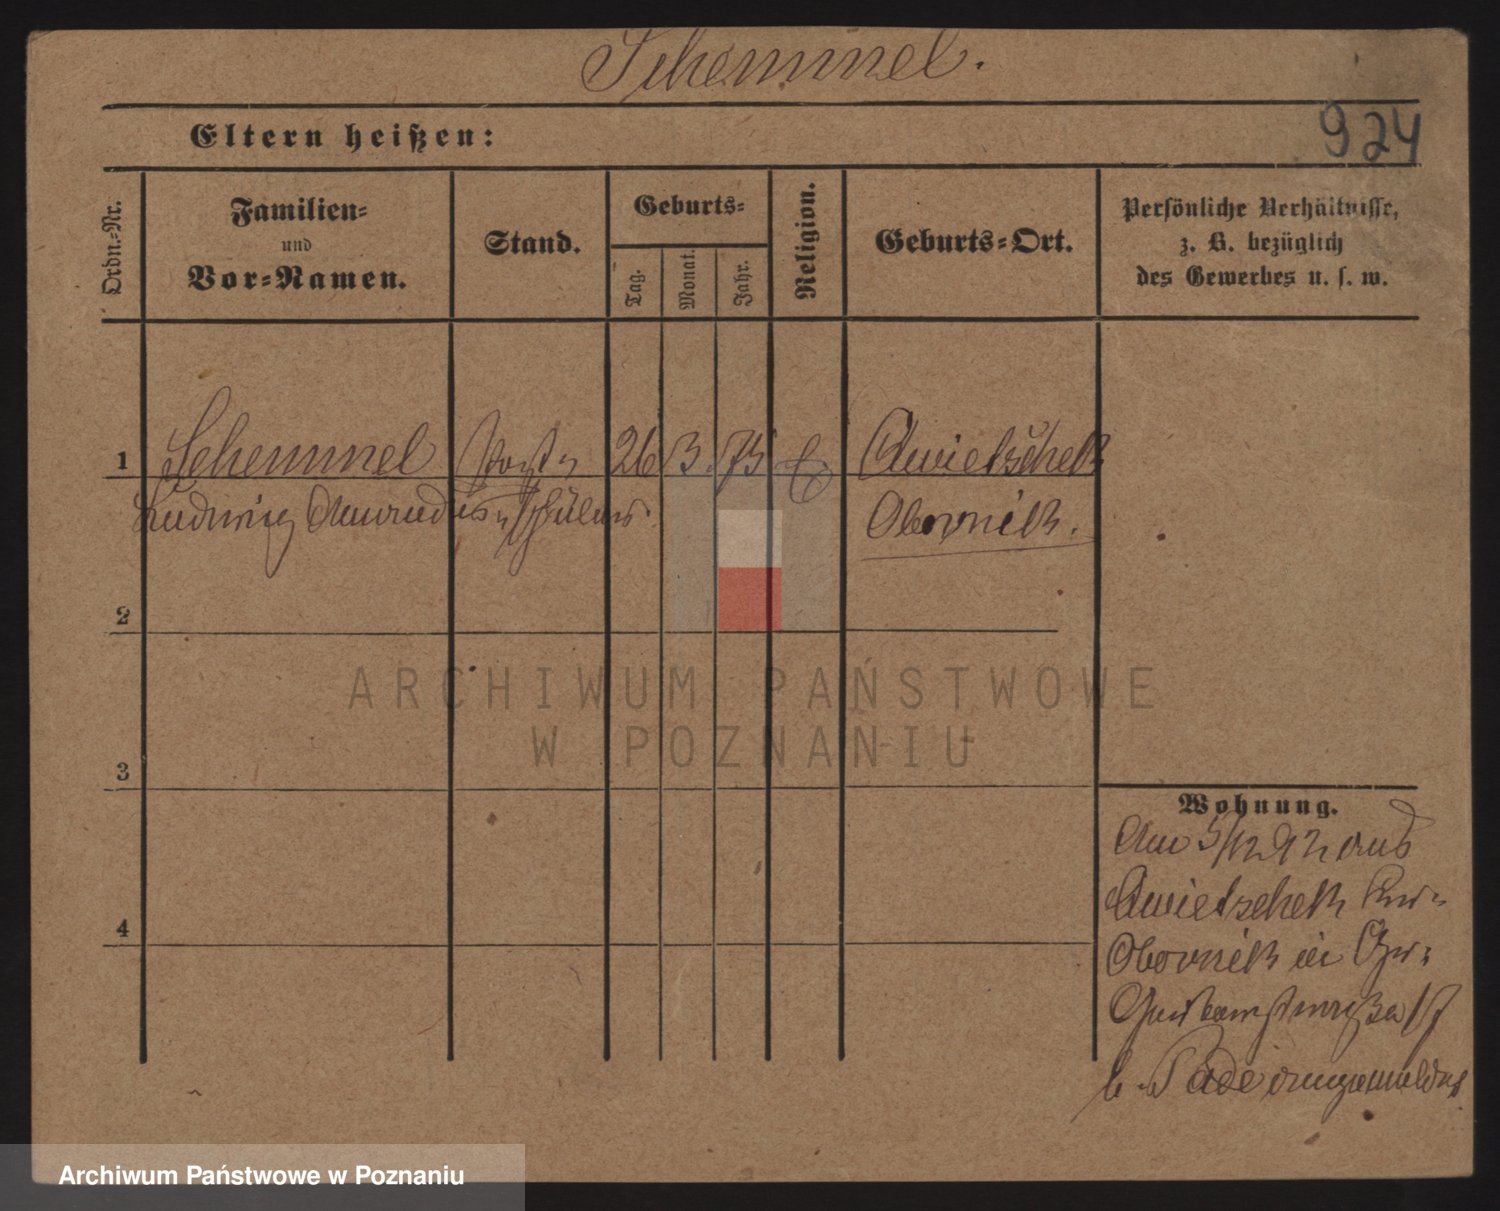 Schemmel.
924
Eltern heißen:
Ordn.-Nr.
Familien-
und
Vor-Namen.
Stand.
Geburts-
Tag.
Monat.
Jahr.
Religion.
Geburts-Ort.
Persönliche Verhältnisse,
z. B. bezüglich
des Gewerbes u. s. w.
1 Schemmel 26 3 75 Owietschek
Ludwig Amandus
Obornik.
2
3
4
Wohnung.
Am 5/12 92 aus
Owietschek
Obornik in
b. angemeldet
ARCHIWUM PAŃSTWOWE
W POZNANIU
Archiwum Państwowe w Poznaniu